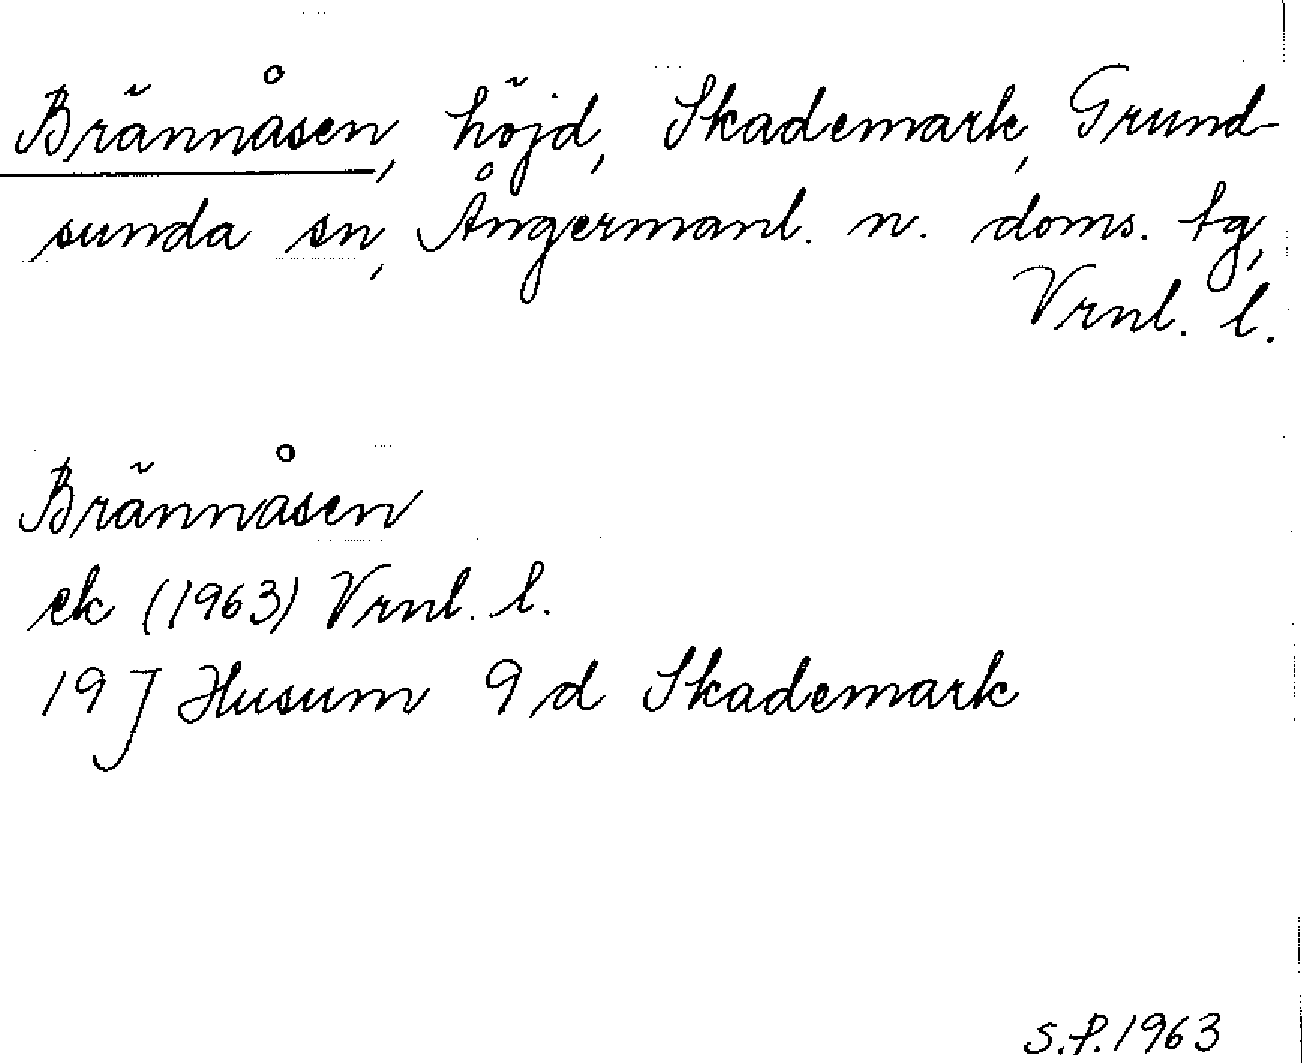 Brännåsen, höjd, Skademark, Grund-
sunda sn, Ångermanl. n. doms. tg,
Vrnl. l.
Brännåsen
ek (1963) Vrnl. l.
19 J Husum 9 d Skademark
S.P. 1963